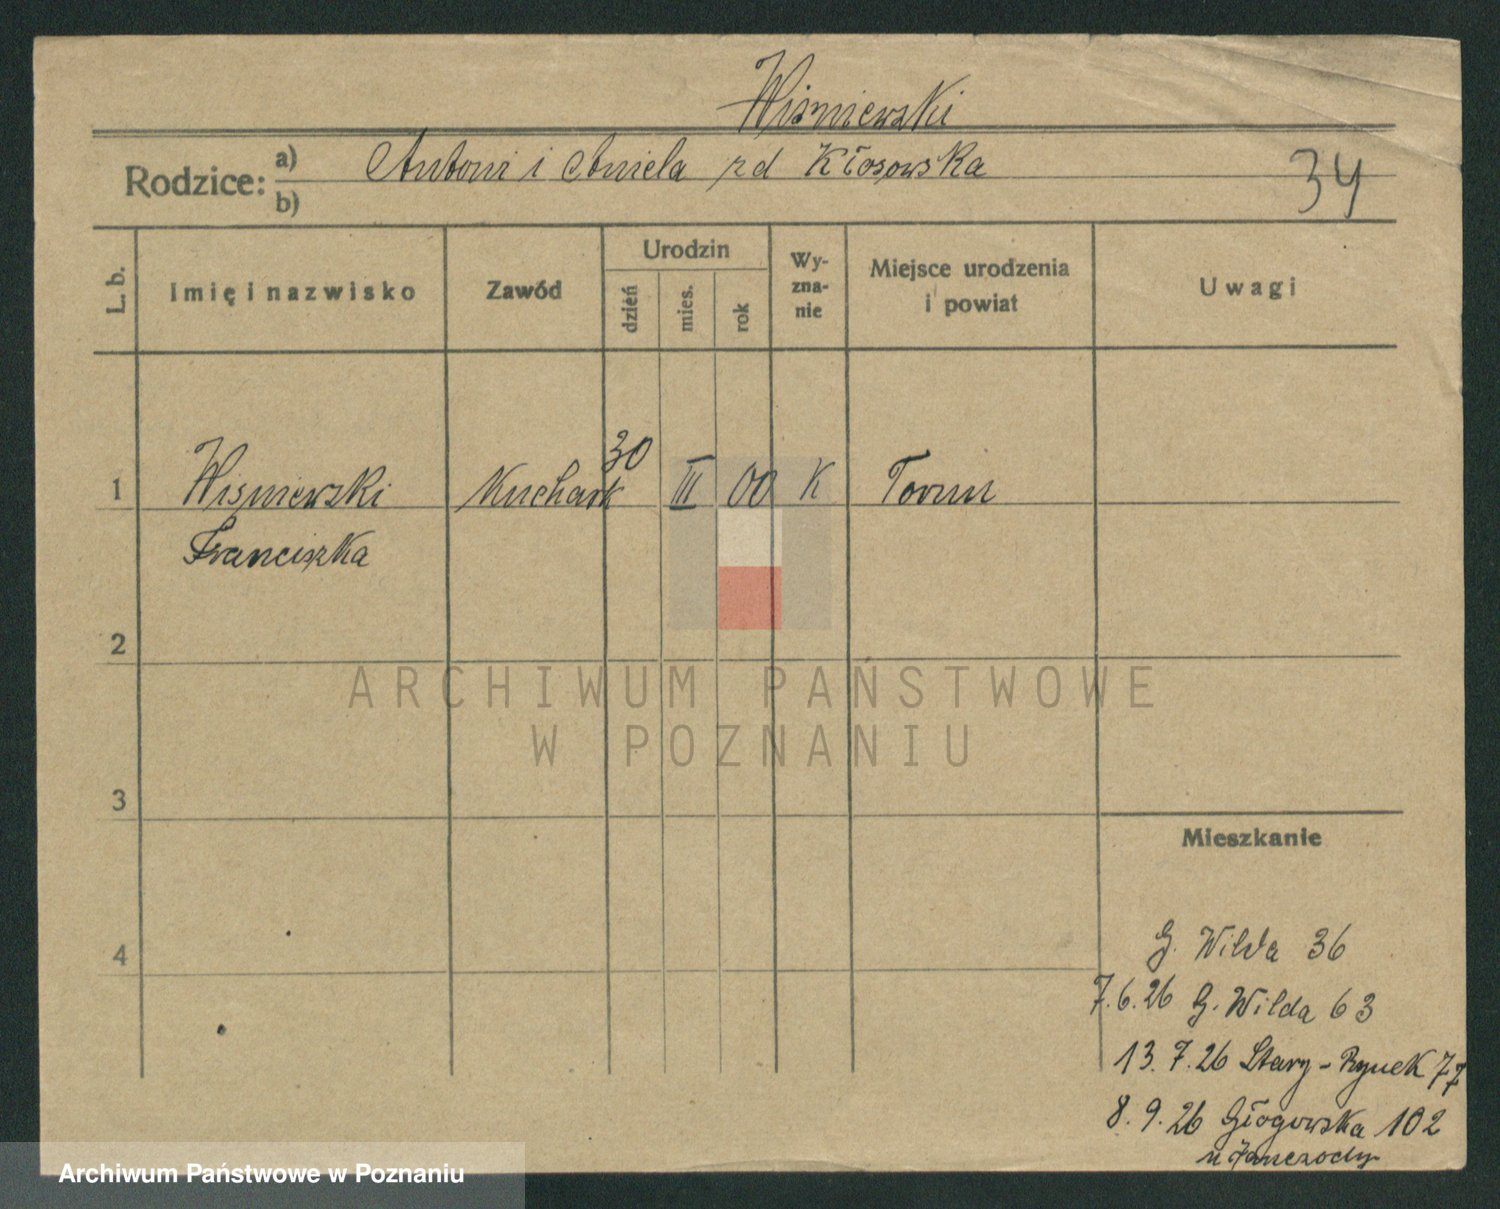 Wiśniewski
Rodzice: a) Antoni i Aniela rd Kłosowska
b)
34
L. b. Imię i nazwisko Zawód Urodzin dzień mies. rok Wy-zna-nie Miejsce urodzenia i powiat Uwagi
1 Wisniewski Kuchark 30 III 00 K Torun
Franciszka
2
ARCHIWUM PAŃSTWOWE
W POZNANIU
3
Mieszkanie
4
G. Wilda 36
7.6.26 G. Wilda 63
13.7.26 Stary-Rynek 77
8.9.26 Głogowska 102
u
Archiwum Państwowe w Poznaniu